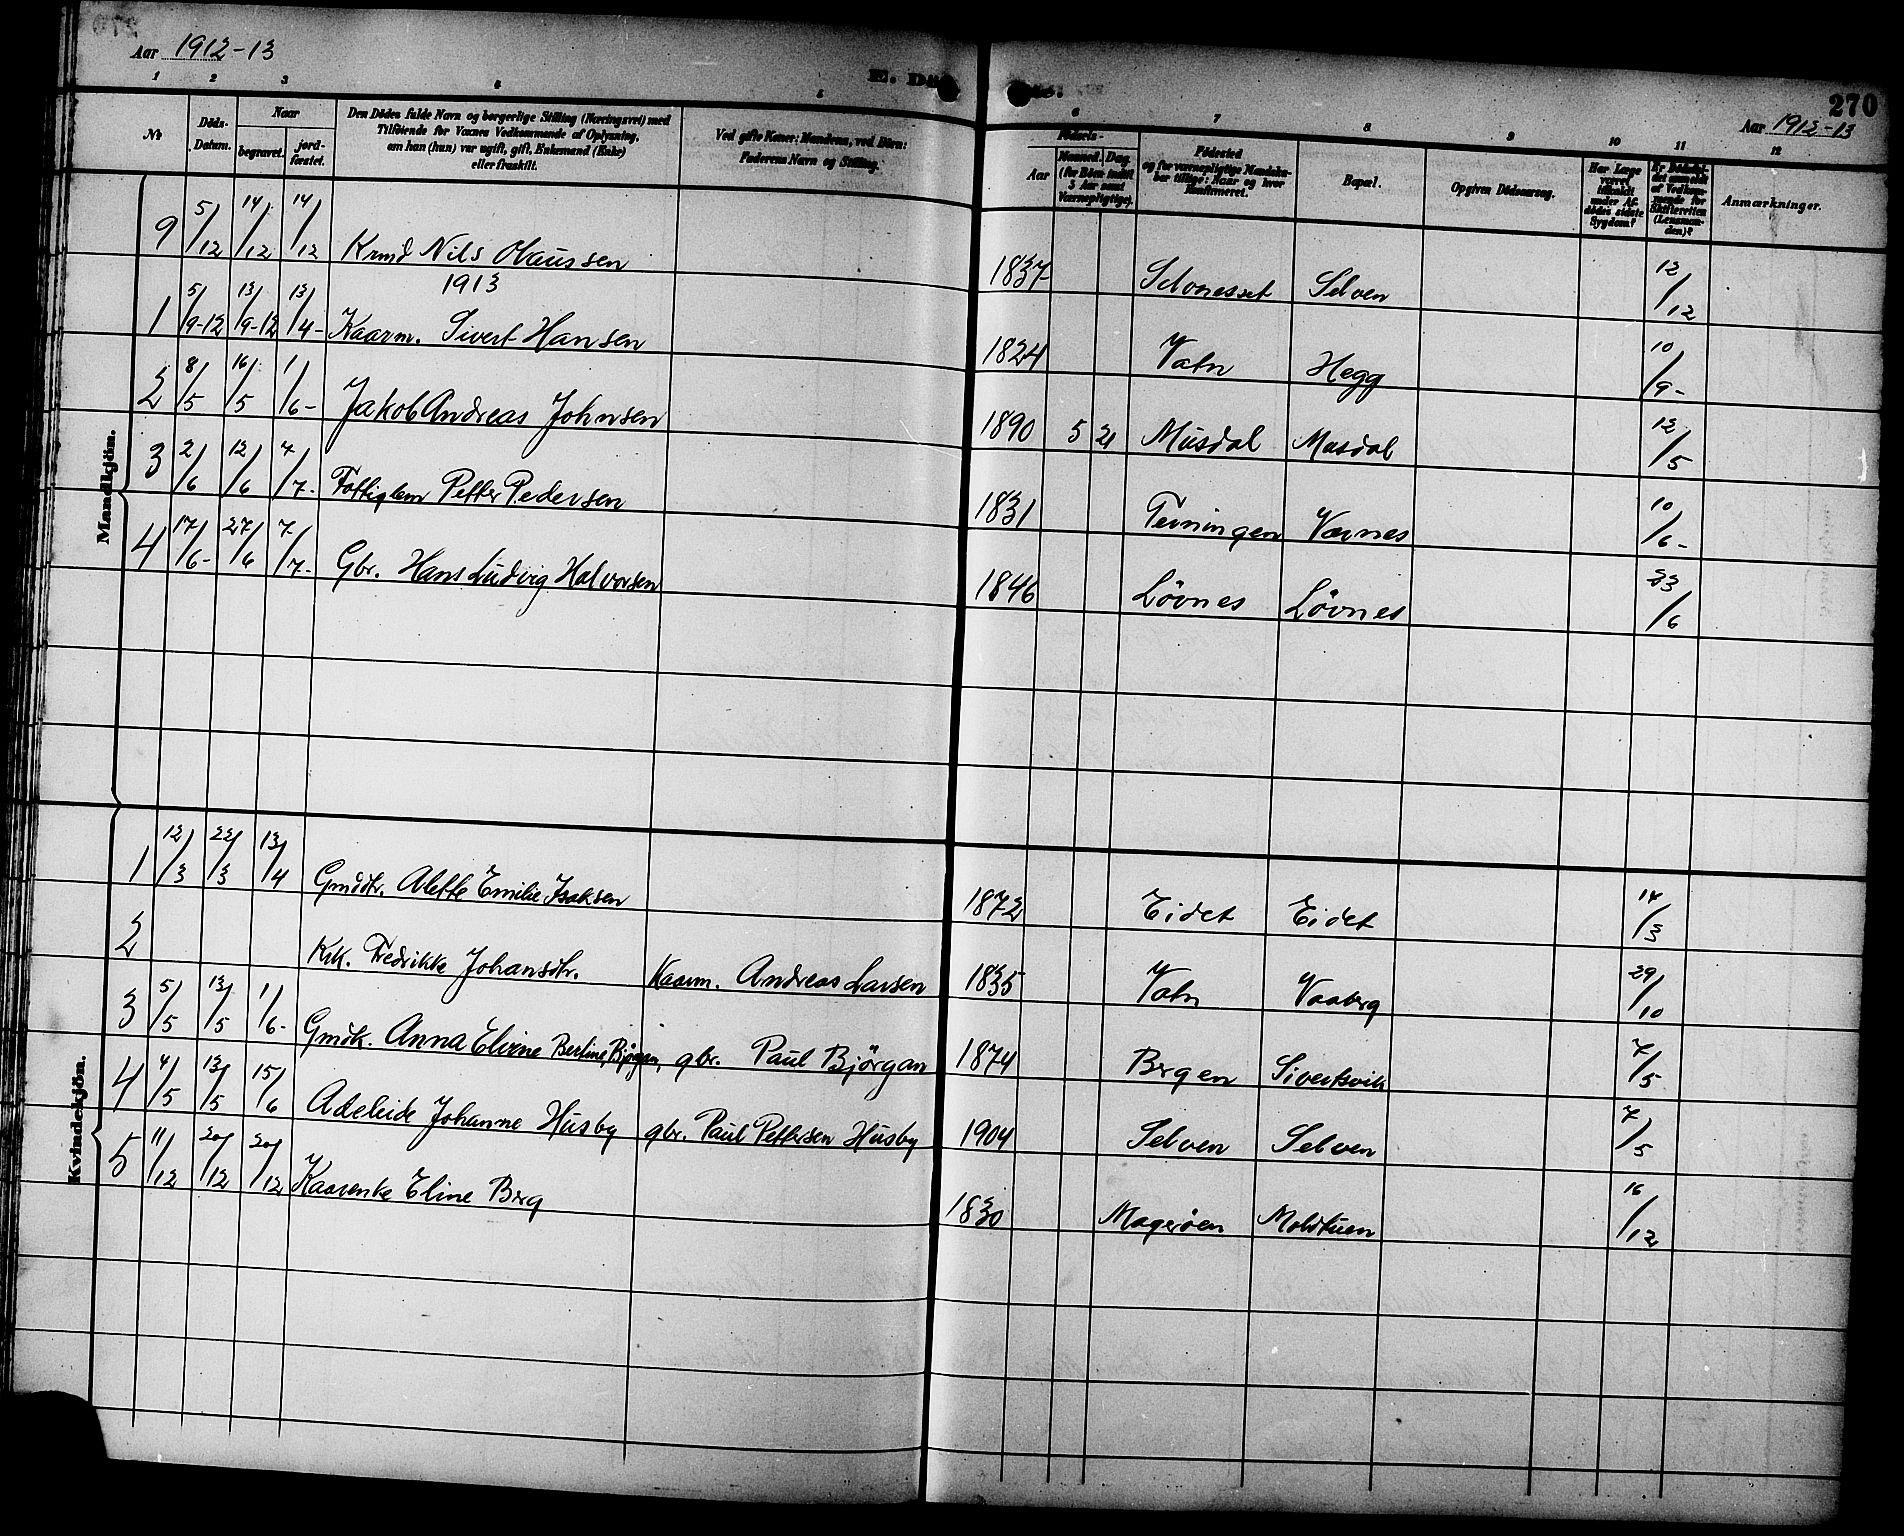 Aar 1912-13
E. Dø
de.
270
Aar 1912-13
1 2 3 4 5 6 7 8 9 10 11 12
No
Døds-Datum.
Naar
begravet.
jord-fæstet.
Den Dødes fulde Navn og borgerlige Stilling (Næringsvei) med
Tilføiende for Voxnes Vedkommende af Oplysning,
om han (hun) var ugift, gift, Enkemand (Enke)
eller fraskilt.
Ved gifte Koner: Mandens, ved Børn:
Faderens Navn og Stilling.
Fødsels-
Aar
Maaned. Dag.
(for Børn indtil
3 Aar samt
Værnepligtige).
Fødested
og for værnepligtige Mandskaber tillige: Naar og hvor
Konfirmeret.
Bopæl.
Opgiven Dødsaarsag.
Har Læge
været
tilkaldt
under Afdødes sidste
Sygdom?
Er Dødsfaldet anmeldt
af Vedkommende for
Skifteretten
(Lensmanden)?
Anmærkninger.
Mandkjøn.
9 5/12 14/12 14/12 Knud Nils Olaussen 1837 Selvnesset Selven 12/12
1913
1 5/9-12 13/9-12 13/4- Kaarm. Sivert Hansen 1824 Vatn Hegg 10/9-
2 8/5 16/5 1/6- Jakob Andreas Johnsen 1890 5 21 Musdal Masdal 12/5
3 2/6 12/6 7/7- Fattiglem Petter Pedersen 1831 Terningen Værnes 10/6-
4 17/6- 27/6 7/7- Gbr. Hans Ludvig Halvorsen 1846 Løvnes Løvnes 23/6
Kvindekjøn.
1 12/3 22/3 13/4 Gmddtr. Alette Emilie Isaksen 1872 Eidet Eidet 14/3
2 Krk. Fredrikke Johansdtr. Kaarm. Andreas Larsen 1835 Vatn Vaaberg 29/10
3 5/5 13/5 1/6- Gmdk. Anna Elirne Berline Bjørgan, gbr. Paul Bjørgan 1874 Bergen Sivertsvik 7/5
4 4/5 13/5 15/6 Adeleide Johanne Husby gbr. Paul Pettersen Husby 1904 Selven Selven 7/5
5 11/12 20/12 20/12 Kaarenke Eline Berg 1830 Magerøen Moldtuen 16/12